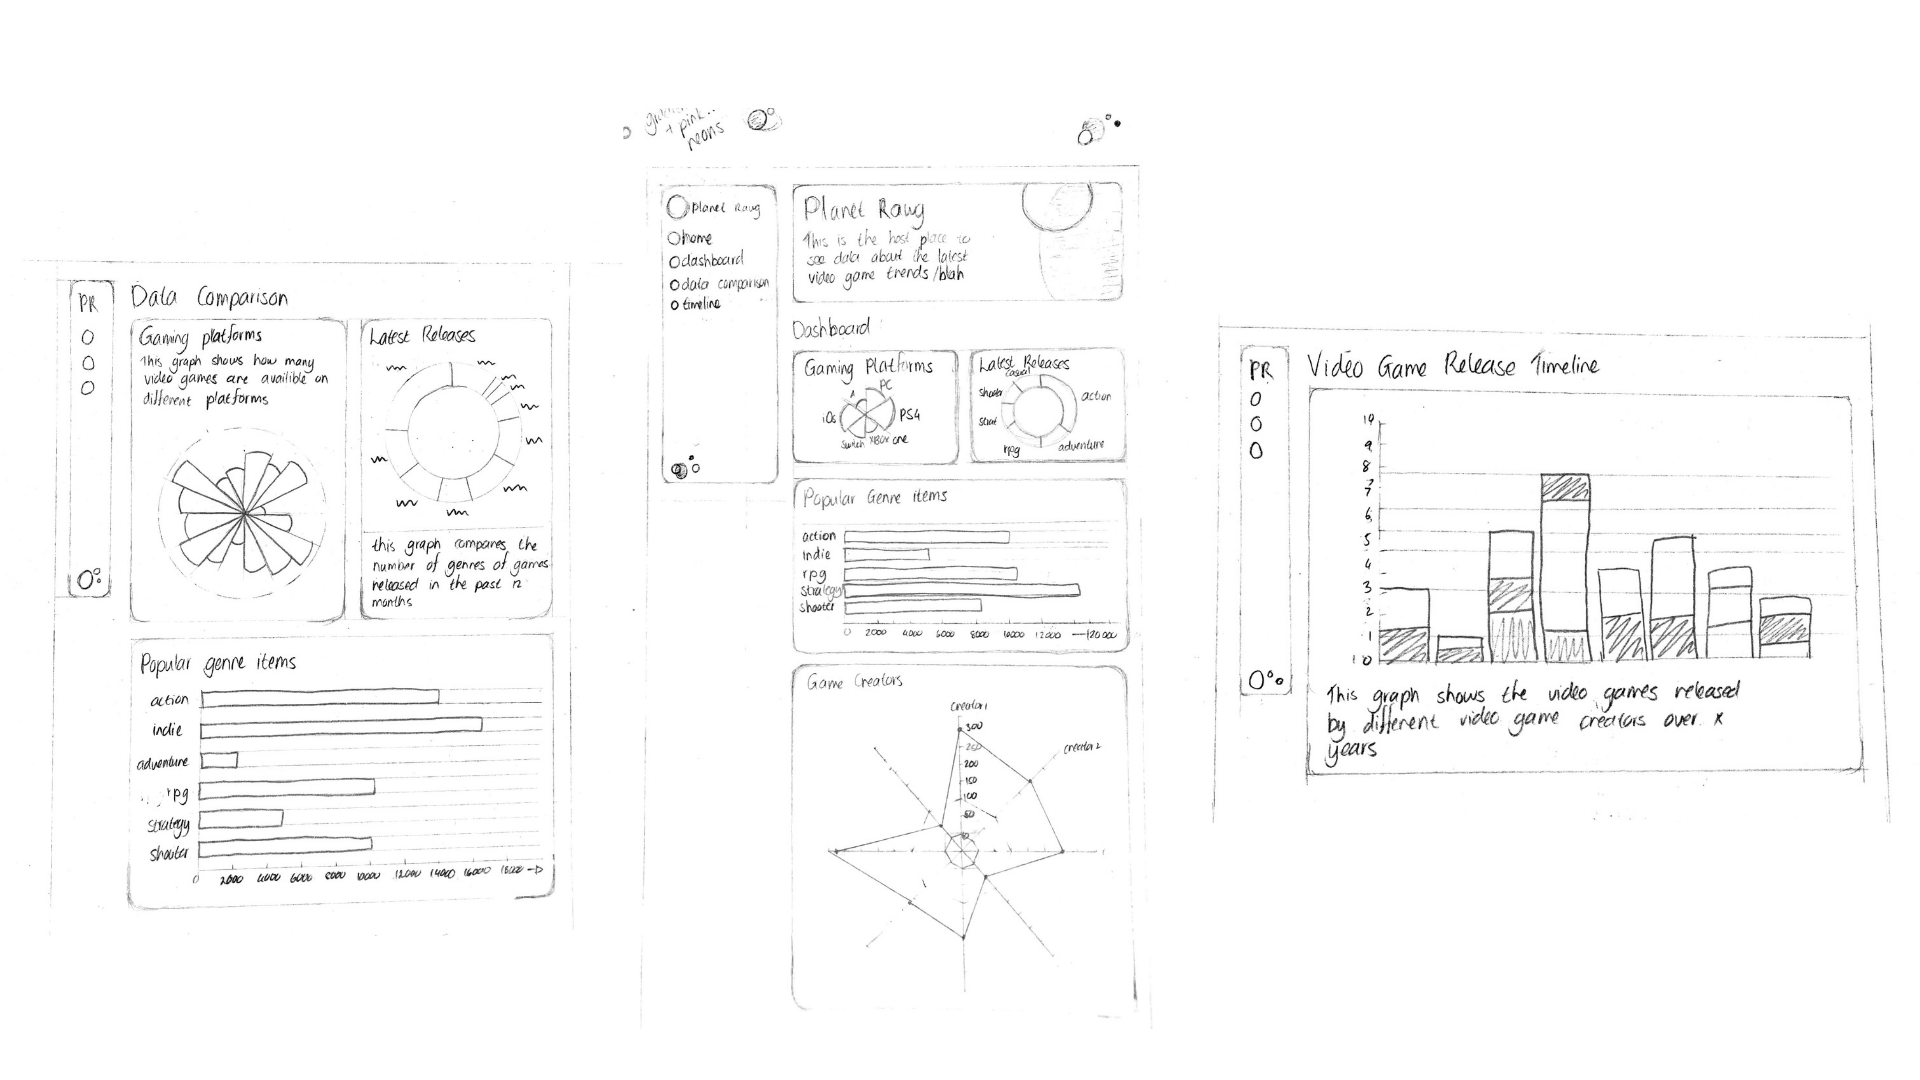 PR
Data Comparison
Gaming platforms
This graph shows how many
video games are availible on
different platforms
Latest Releases
this graph compares the
number of genres of games
released in the past 12
months
Popular genre items
action
indie
adventure
rpg
strategy
shooter
0 2000 4000 6000 8000 10000 12000 14000 16000
+ pink..
neons
Planet Rawg
home
dashboard
data comparison
timeline
Planet Rawg
This is the host place to
see data about the latest
video game trends/blah
Dashboard
Gaming Platforms
PC
iOs
PS4
Switch
XBOX one
Latest Releases
casual
shooter
action
strat
rpg
adventure
Popular Genre items
action
indie
rpg
strategy
shooter
0 2000 4000 6000 8000 10000 12000 120000
Game Creators
creator1
300
250
creator2
200
150
100
50
PR
Video Game Release Timeline
10
9
8
7
7
6
5
4
3
2
1
0
This graph shows the video games released
by different video game creators over x
years